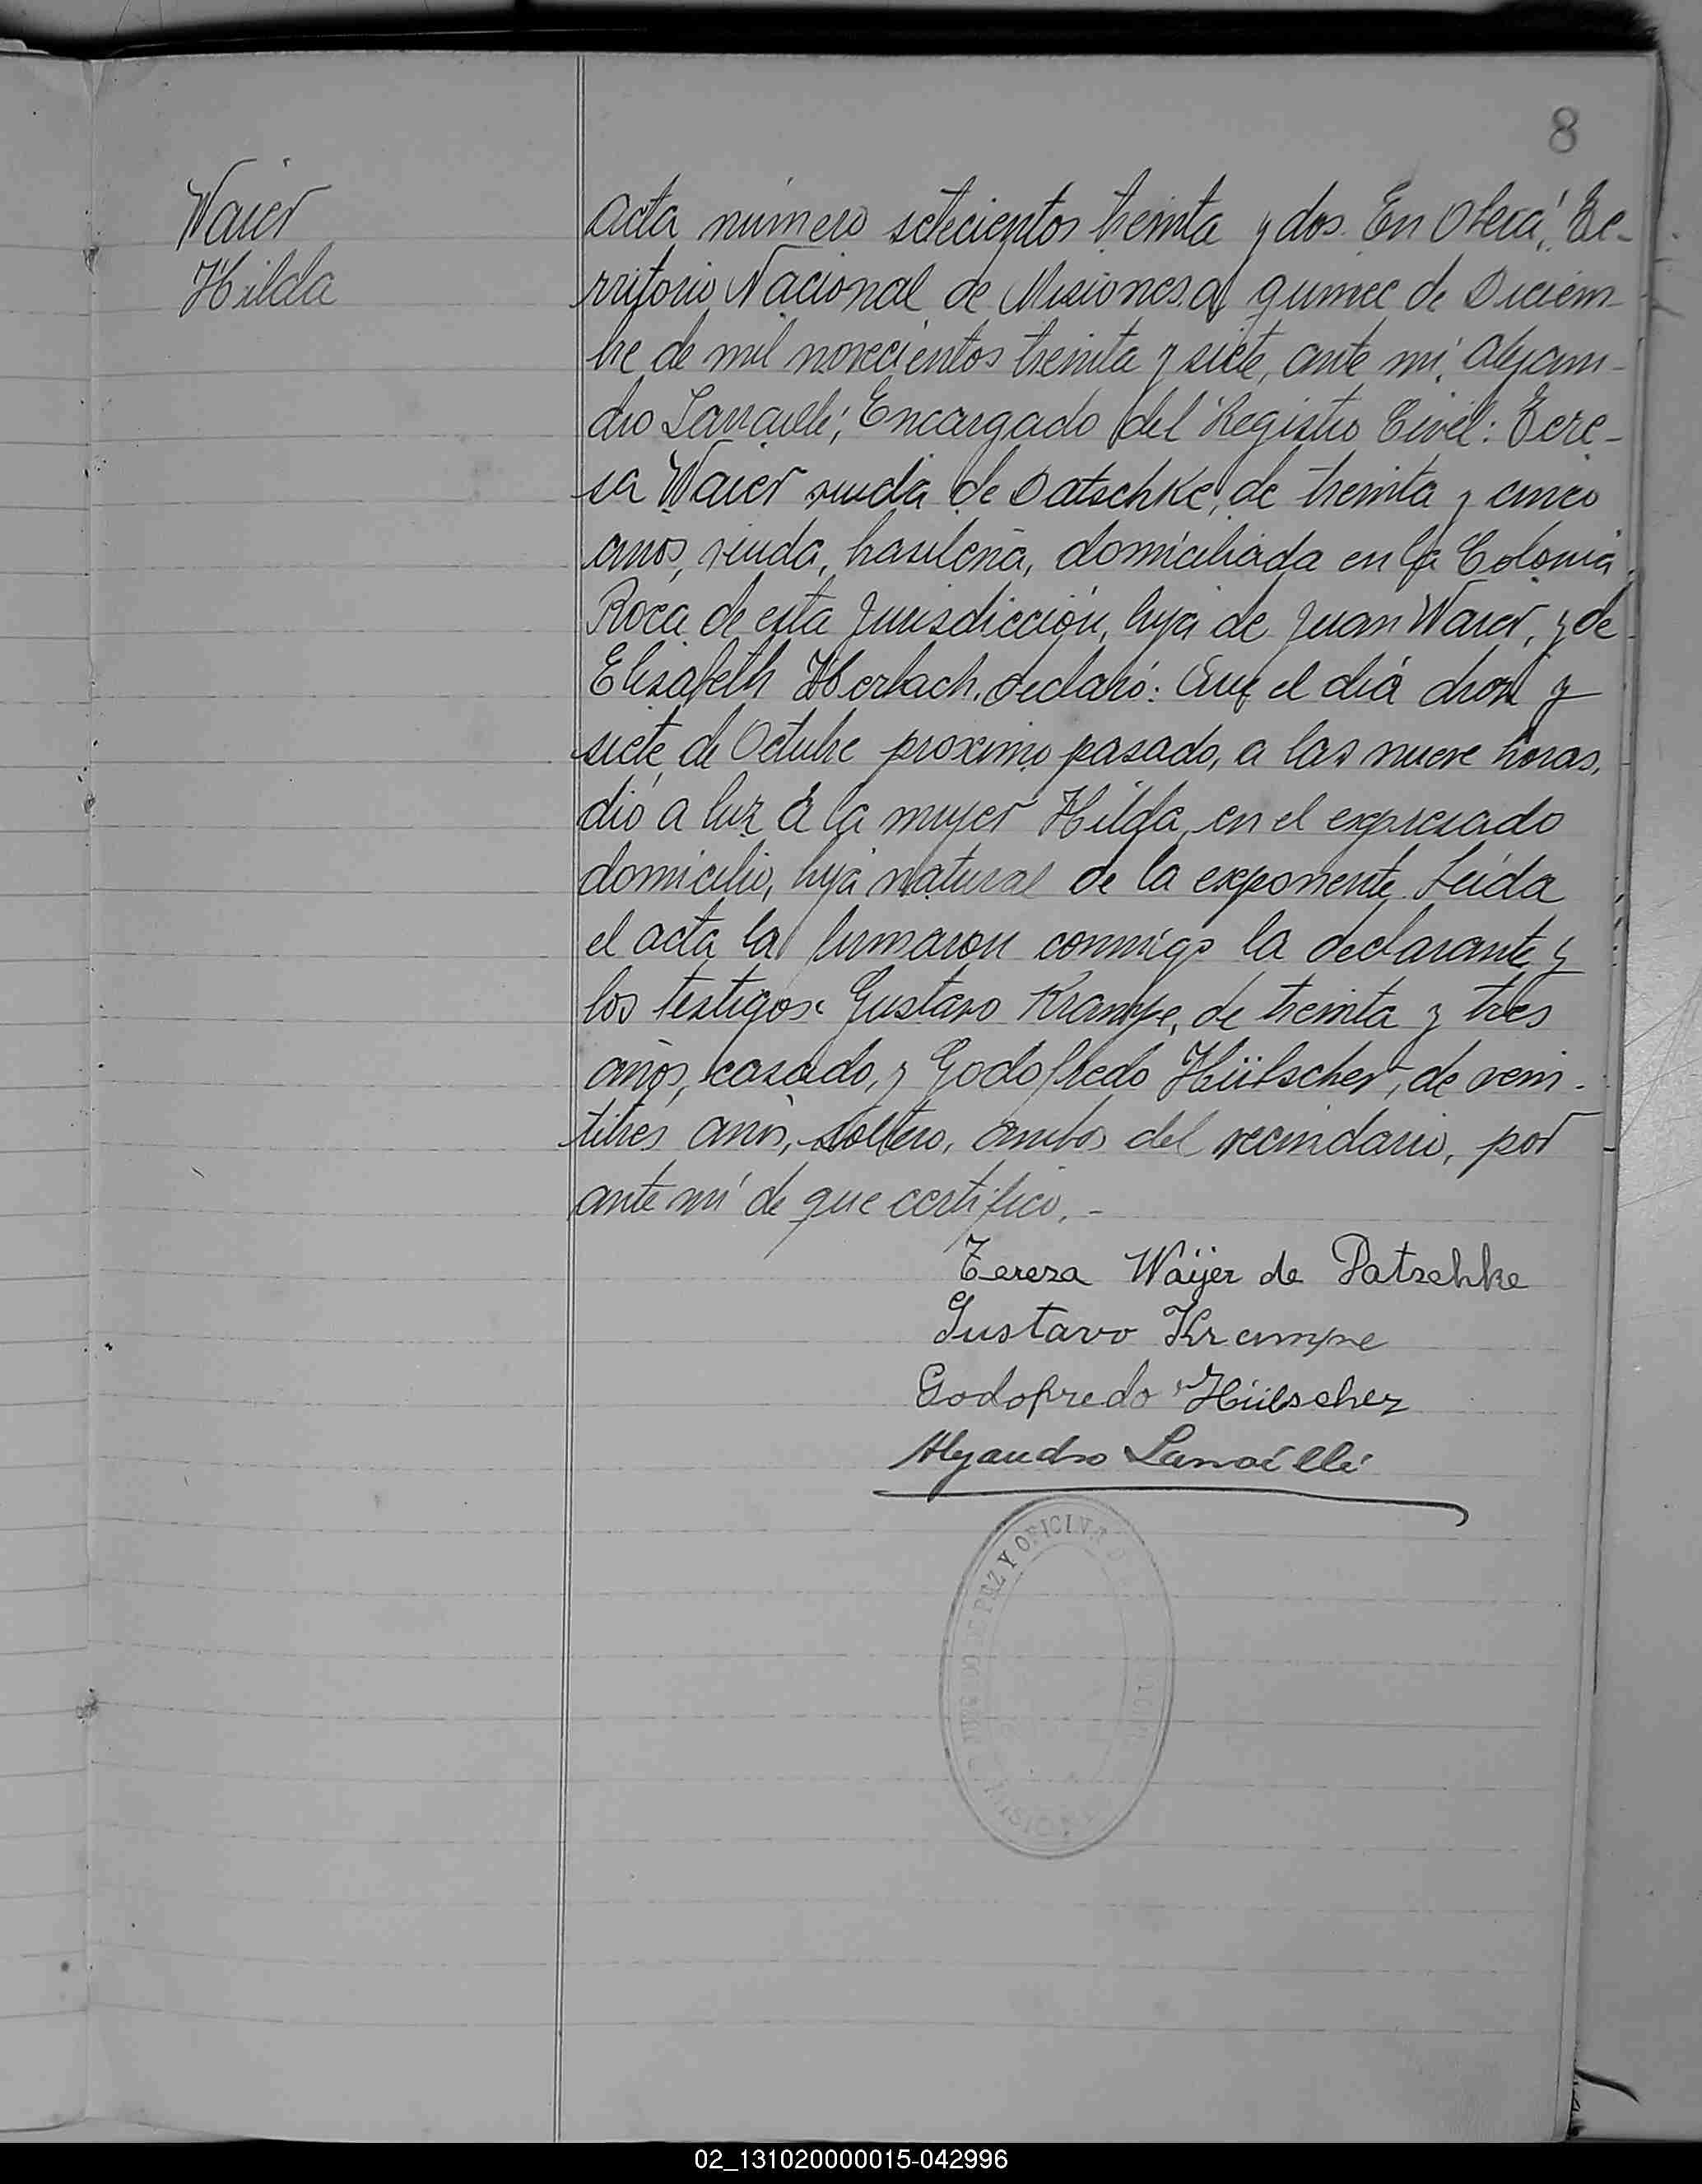 8
Waier
Hilda
Acta número setecientos treinta y dos. En Oberá, Te-
rritorio Nacional de Misiones, a quince de Diciem-
bre de mil novecientos treinta y siete, ante mí, Alejan-
dro Larraillé, Encargado del Registro Civil: Tere-
sa Waier viuda de Datschke, de treinta y cinco
años, viuda, brasileña, domiciliada en la Colonia
Roca de esta Jurisdicción, hija de Juan Waier, y de
Elisabeth Herbach, declaró: Que el día diez y
siete de Octubre proximo pasado, a las nueve horas,
dió a luz a la mujer Hilda, en el expresado
domicilio, hija natural de la exponente. Leída
el acta la firmaron conmigo la declarante y
los testigos: Gustavo Krampe, de treinta y tres
años, casado, y Godofredo Hübscher, de vein-
titres años, soltero, ambos del vecindario, por
ante mí de que certifico.-
Tereza Waÿer de Patschke
Gustavo Krampe
Godofredo Hübscher
Alejandro Larraillé
PAZ Y OFICINA
02_131020000015-042996